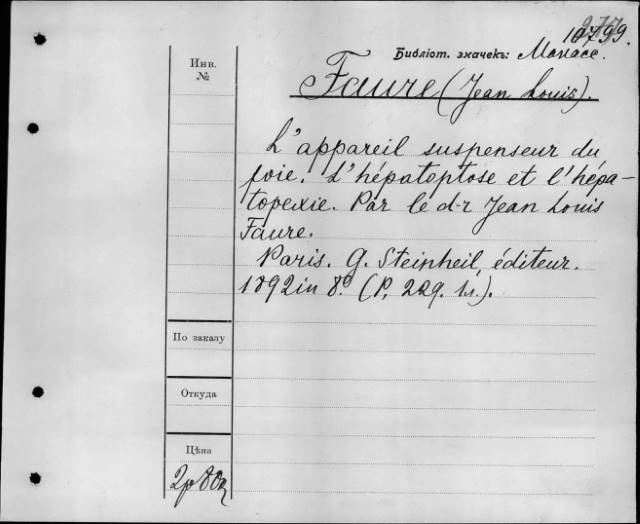 10799
Библіот. значекъ: Manacé.
Инв.
№
Faure (Jean Louis).
L'appareil suspenseur du
foie. L'hépatoptose et l'hépa-
topexie. Par le d-r Jean Louis
Faure.
Paris. G. Steinheil, éditeur.
1892 in 8º (P, 229. 1л.).
По заказу
Откуда
Цѣна